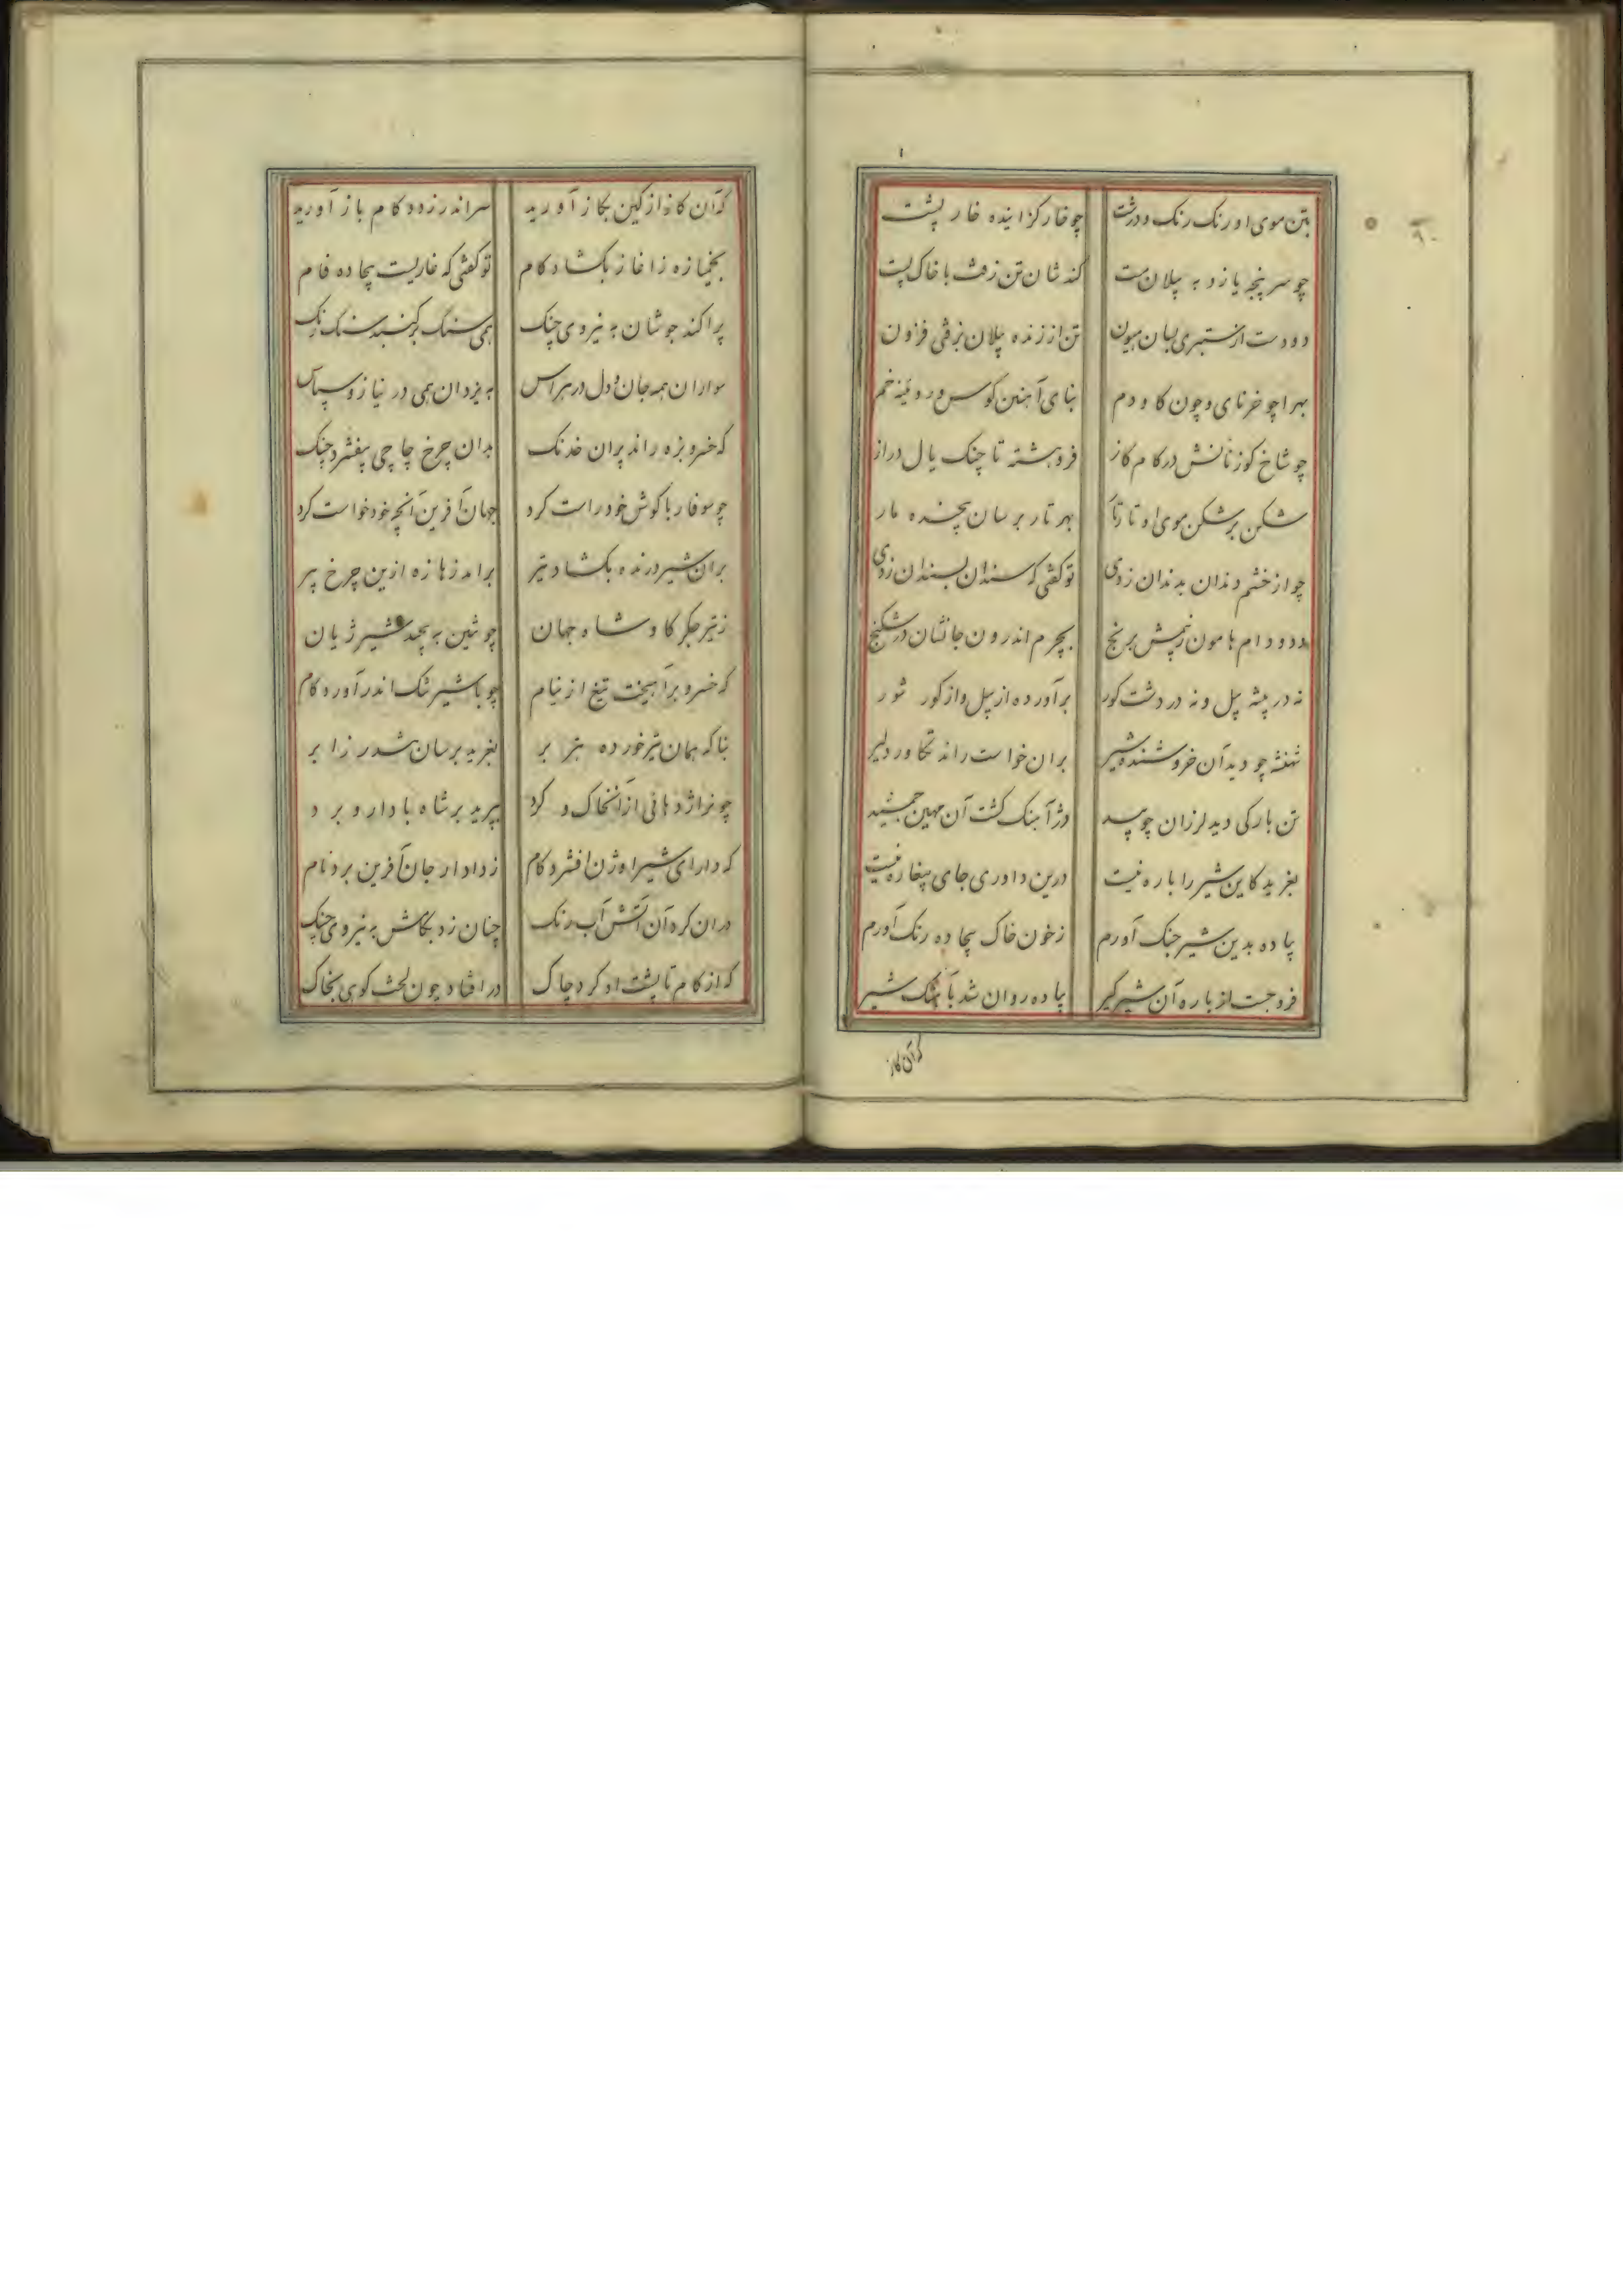 ۹۰
بتن موی او رنک رنک و درشت چو خار کزاینده خار پشت
چو سر پنجه یازد به پیلان مست کند شان تن زفت با خاک پست
دو دست از ستبری بسان هیون تن از زنده پیلان بزفتی فزون
بهرا چو خرنای و چون کاو دم بنای آهنین کوس و روئینه خم
چو شاخ کوزنانش در کام کاز فروهشته تا چنک یال دراز
شکن بر شکن موی او تا رتا بهر تار بر سان پیچنده مار
چو از خشم دندان بدندان زدی تو کفتی که سندان بسندان زدی
دد و دام هامون زنیمش برنج بچرم اندرون جانشان در شکنج
نه در پیشه پیل و نه در دشت کور برآورده از پیل و از کور شور
شهنشه چو دید آن خروشنده شیر بران خواست راند تکاور دلیر
تن بارکی دید لرزان چو بید دژ آهنک کشت آن مهین جمشید
بغرید کاین شیر را باره نیست درین داوری جای بیغاره نیست
پیاده بدین شیر جنک آورم ز خون خاک بیجاده رنک آورم
فرو جست از باره آن شیر کیر پیاده روان شد بآهنک شیر
کز آن کاز
کز آن کاز از کین بکاز آورید سر اندر زدو کام باز آورید
بخمیازه زاغاز بکشاد کام تو کفتی که غاریست بیجاده فام
پراکند جوشان به نیروی چنک همی سنک بر کنبد سنک رنک
سواران همه جان و دل در هراس به یزدان همی در نیاز و سپاس
که خسرو بزه راند پران خدنک بدان چرخ چاچی بیفشرد چنک
چو سوفار با کوش خود راست کرد جهان آفرین آنچه خود خواست کرد
بران شیر درنده بکشاد تیر برامد زهازه ازین چرخ پیر
ز تیر جکر کاو شاه جهان چو تنین به پیچید شیر ژیان
که خسرو برآهیخت تیغ از نیام چو با شیر تنک اندر آورد کام
بناکه همان تیر خورده هژبر بغرید بر سان تندر ز ابر
چو نر اژدهائی از آن خاک و کرد بپرید بر شاه با دار و برد
که دارای شیر اوژن افشرد کام ز دادار جان آفرین برد نام
در ان کره آن آتش آب رنک چنان زد بکامش به نیروی چنک
که از کام تا پشت او کرد چاک در افتاد چون لخت کوی بخاک